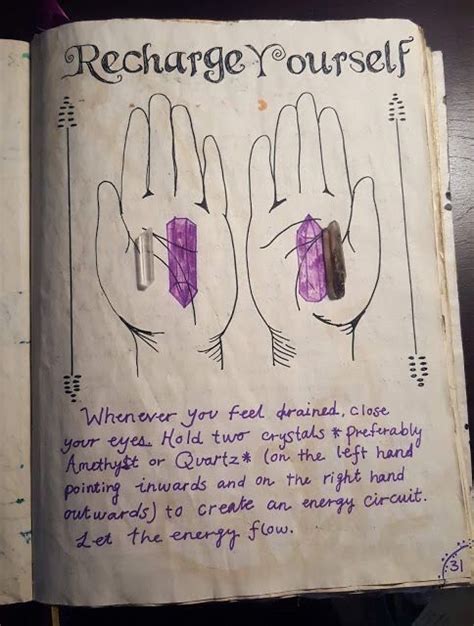 Recharge Yourself
Whenever you feel drained, close
your eyes. Hold two crystals * Preferably
Amethyst or Quartz * (on the left hand
pointing inwards and on the right hand
outwards) to create an energy circuit.
Let the energy flow.
31